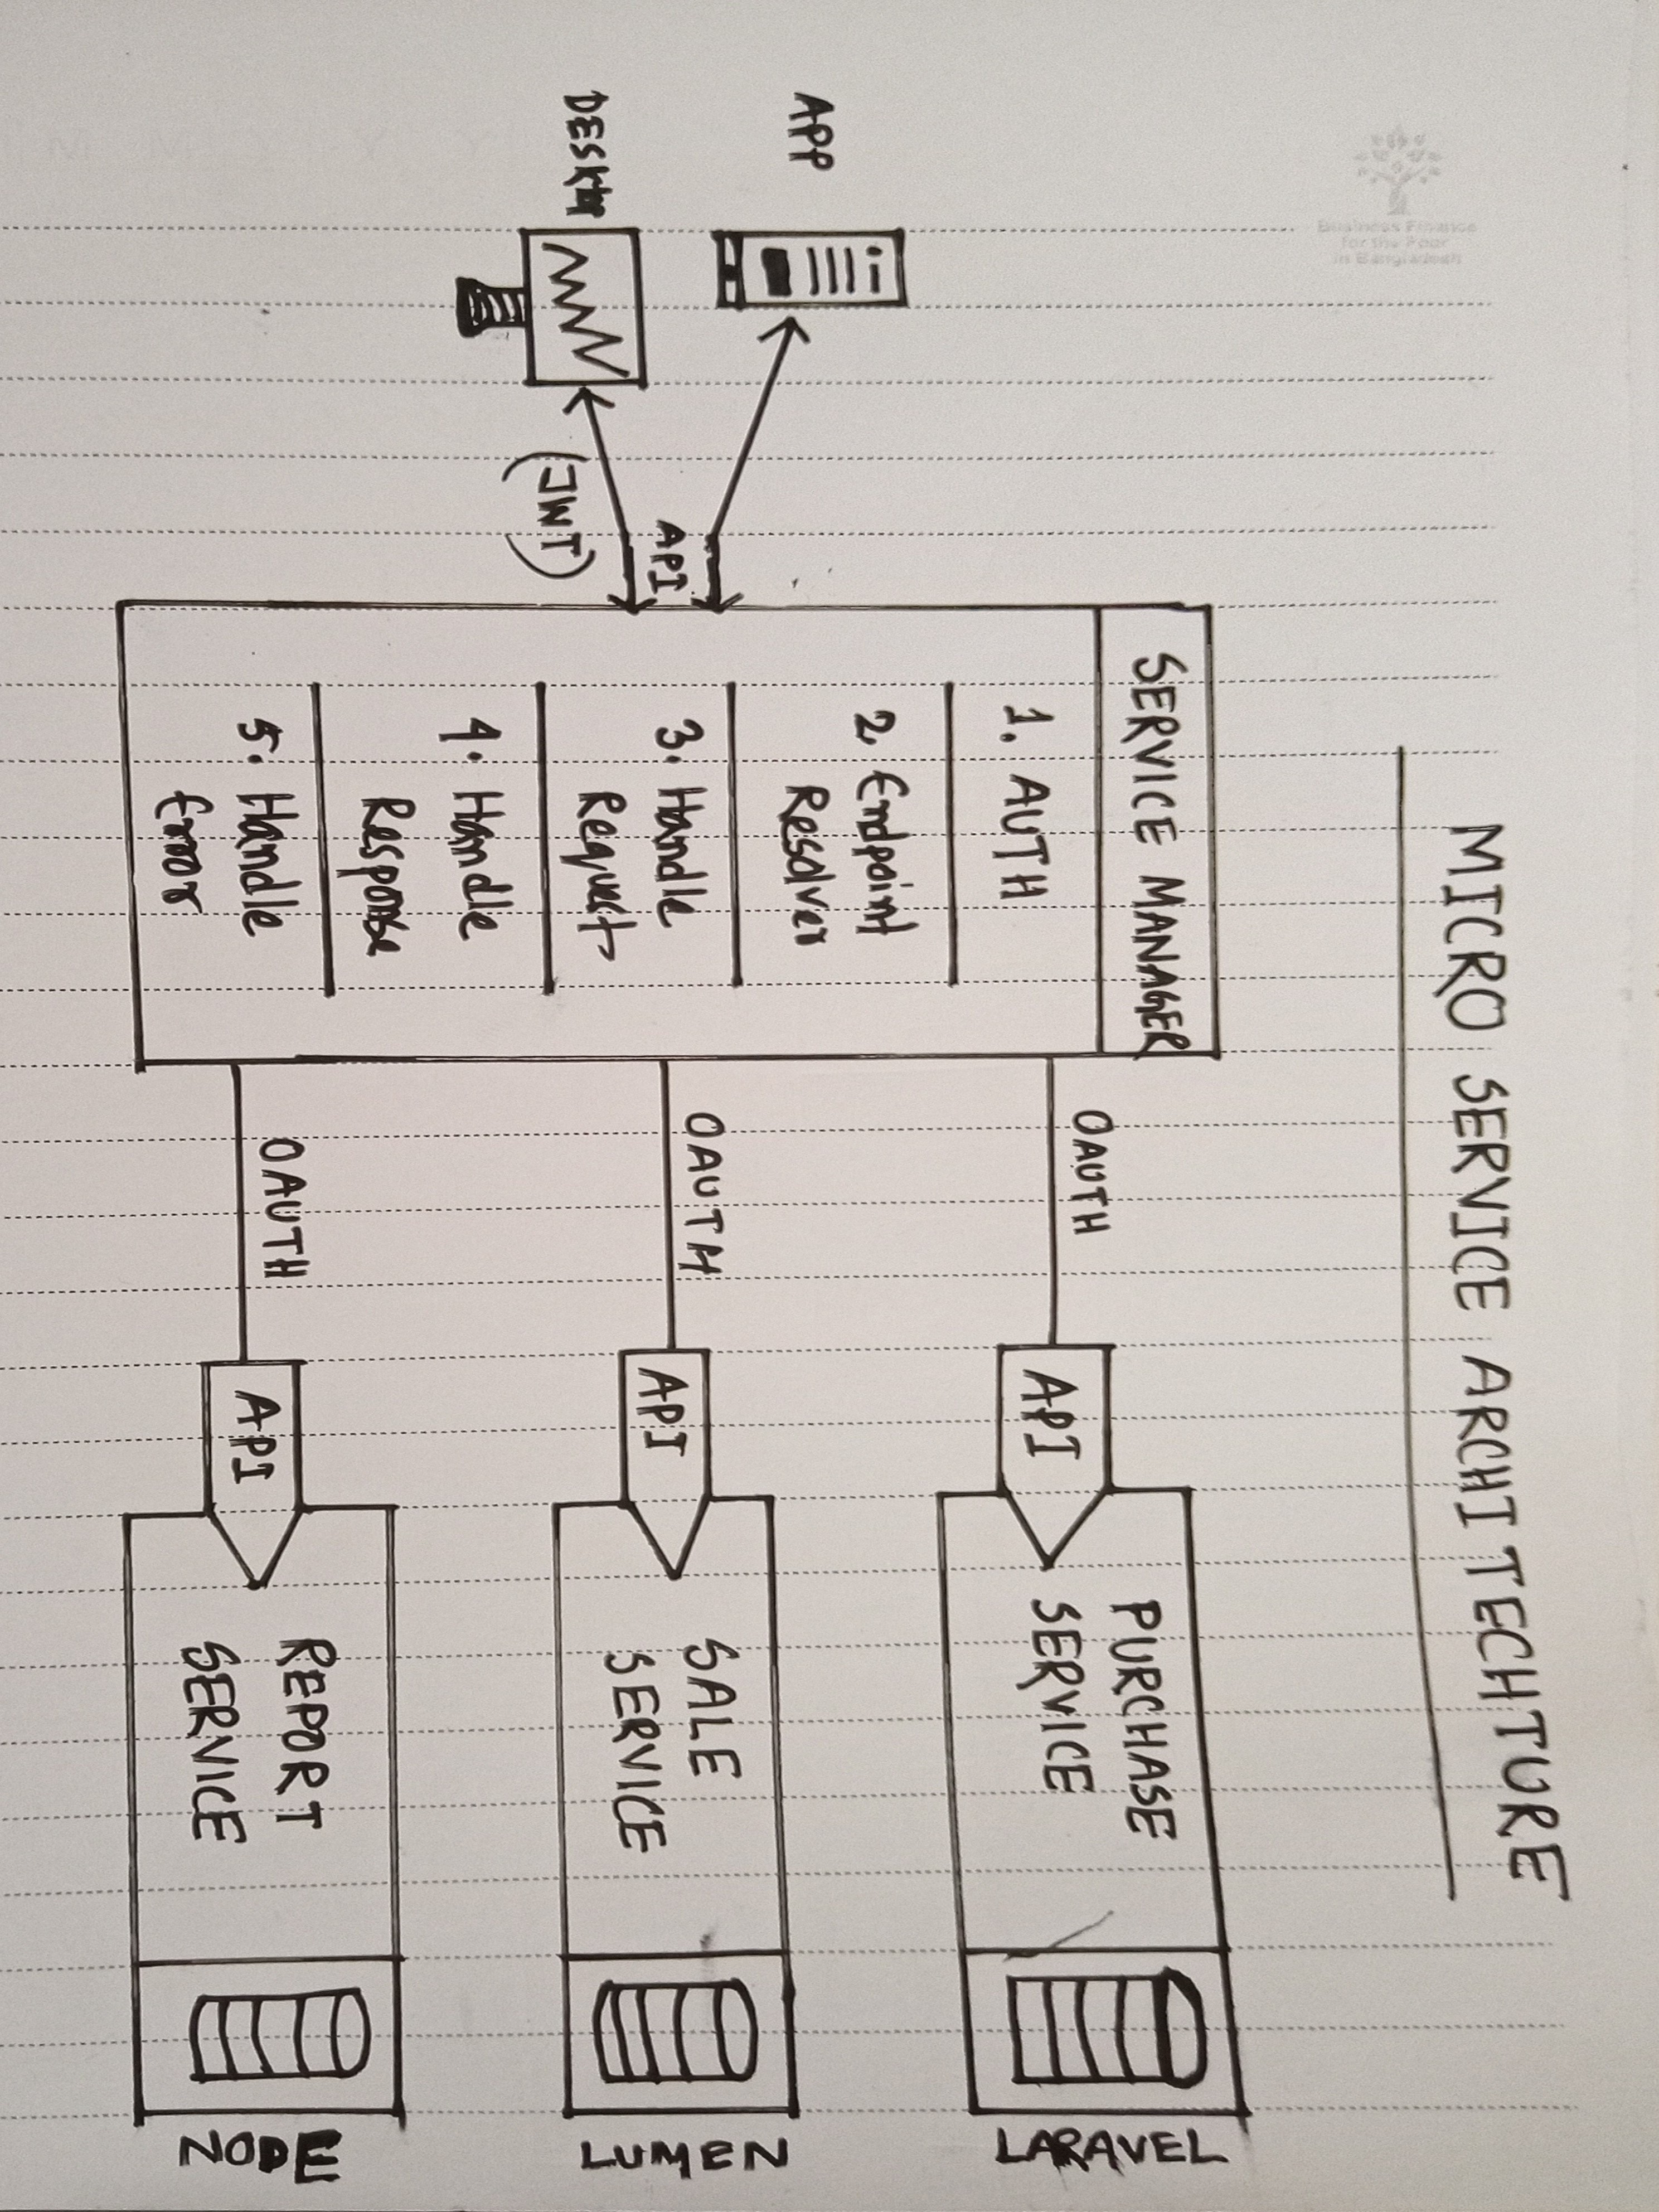 MICRO SERVICE ARCHITECHTURE
SERVICE MANAGER
1. AUTH
2 Endpoint
Resolver
3. Handle
Request
4. Handle
Response
5. Handle
Error
APP
DESKTOP
API
(JWT)
OAUTH
API
PURCHASE
SERVICE
LARAVEL
OAUTH
API
SALE
SERVICE
LUMEN
OAUTH
API
REPORT
SERVICE
NODE